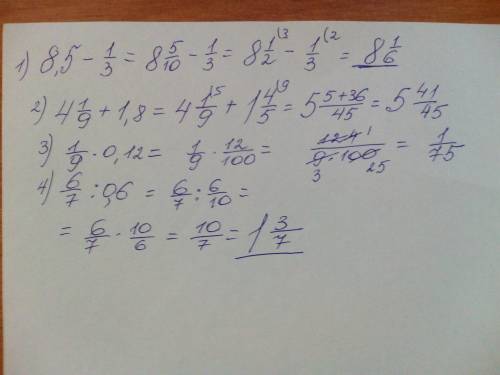 1) 8,5 - 1/3 = 8 5/10 - 1/3 = 8 1/2 (3 - 1/3 (2 = 8 1/6
2) 4 1/9 + 1,8 = 4 1/9 (5 + 1 4/5 (9 = 5 5+36/45 = 5 41/45
3) 1/9 · 0,12 = 1/9 · 12/100 = 12 4 1/9·100 3 25 = 1/75
4) 6/7 : 0,6 = 6/7 : 6/10 =
= 6/7 · 10/6 = 10/7 = 1 3/7